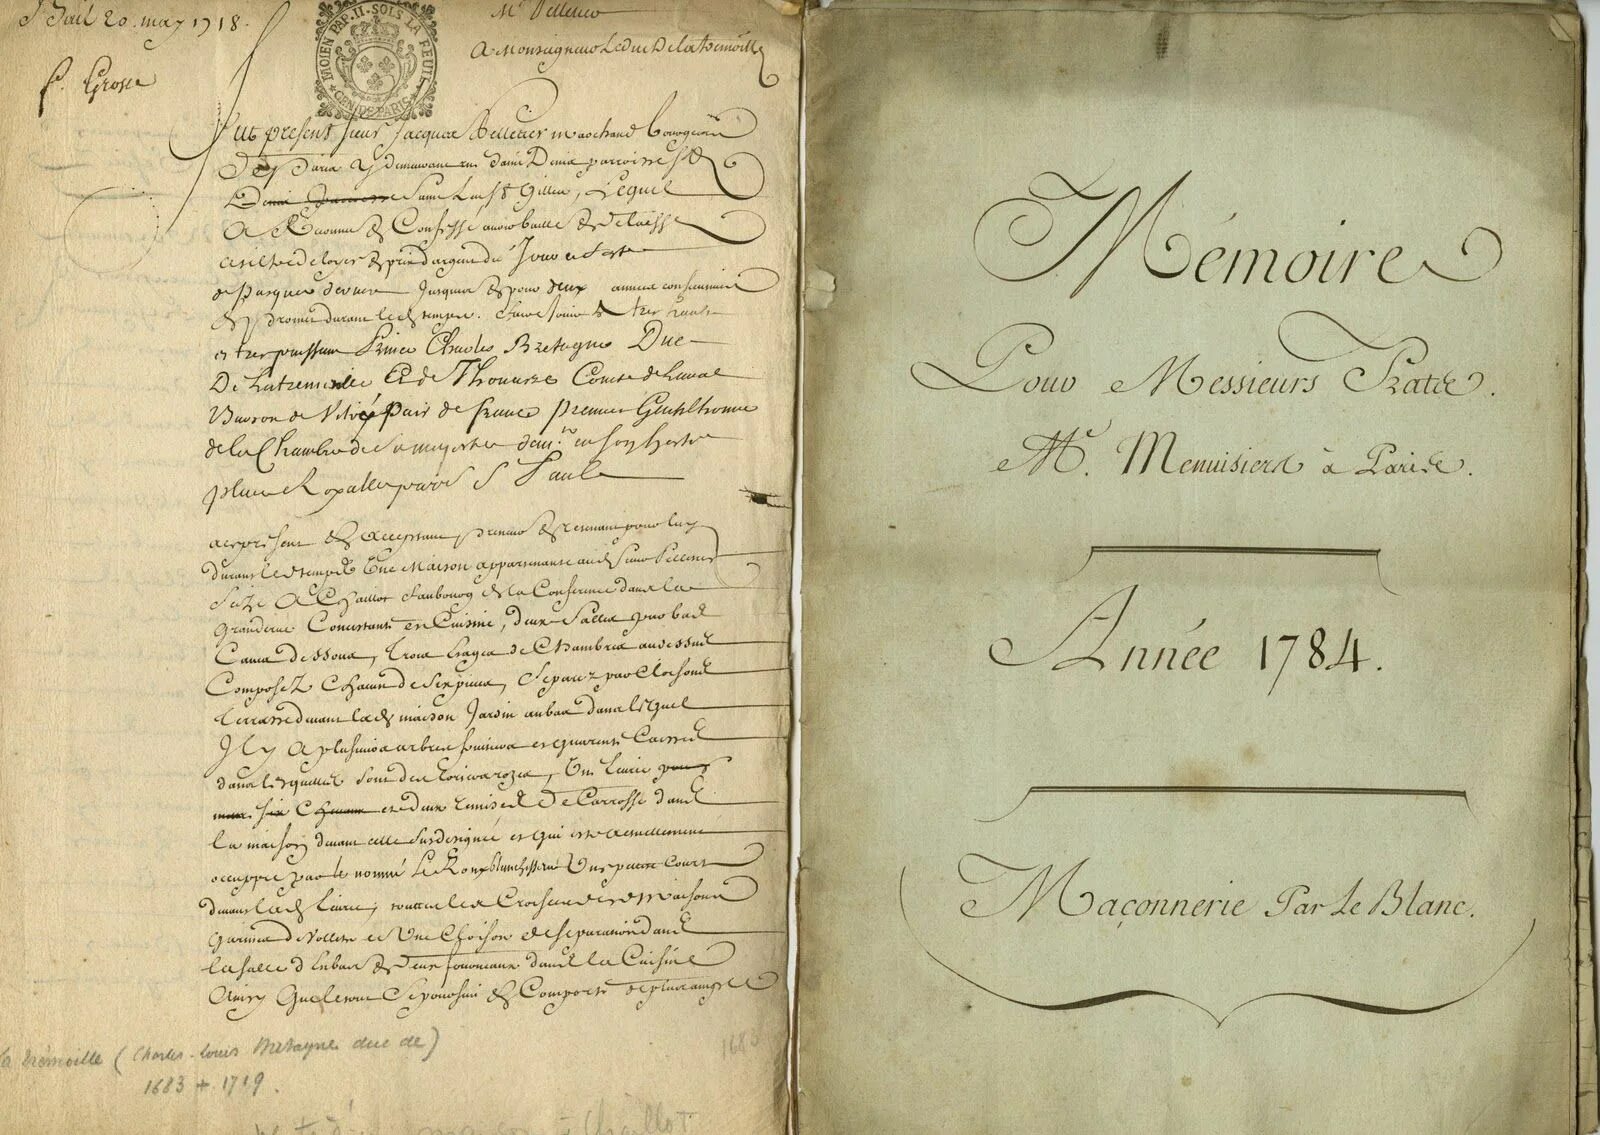 Bail 20. may 1718.
Mr Pelletier
A Monseigneur Le Duc De la tremoille
MOIEN PAP. II. SOLS LA FEUIL
GEN. DE PARIS
fut present sieur Jacques Pelletier marchand bourgeois
De paris y demeurant rue saint Denis parroisse St
Leu St Gilles, Lequel
A Reconnu & Confessé avoir baillé & delaissé
a tiltre de loyer & prix d'argent du Jour et feste
de pasques dernier jusques & pour deux années
durant led temps. tres hault
et tres puissant Prince Charles Bretagne Duc
De Latremoille Et de Thouars Comte de Laval
Baron de Vitré pair de france premier Gentilhomme
de la Chambre de sa majesté dem.t en son hostel
place Royalle parr S Paul
a ce present & acceptant preneur & retenant pour luy
durant led temps Une Maison appartenante aud sieur Pelletier
Size A Chaillot faubourg de la Conference dans la
grande rue Consistante en Cuisine, deux Salles par bas
Caves dessous, trois Etages de Chambres au dessus
Composez Chacun de six pieces, Separez par Cloisons
terrasse devant lad maison Jardin au bas dans lequel
Il y A plusieurs arbres fruitiers et quarante Caisses
dans lesquelles sont des lauriers rozes, Une Ecurie
et deux remises De Carrosse dans
la maison devant celle susdesignée et qui est actuellement
occuppée par le nommé Le Roux blanchisseur Une petite Court
devant lad Ecurie, touttes les Croisées de lad Maison
garnies de Vollets et Une Cloison de separation dans
la salle d'Enbas & deux fourneaux dans la Cuisine
Ainsy que le tout se poursuit & Comporte
La Trémoille (Charles-Louis Bretagne duc de)
1683 + 1719.
1683
à Chaillot
Mémoire
Pour Messieurs
Me. Menuisiers à Paris.
Année 1784.
Maçonnerie Par Le Blanc.